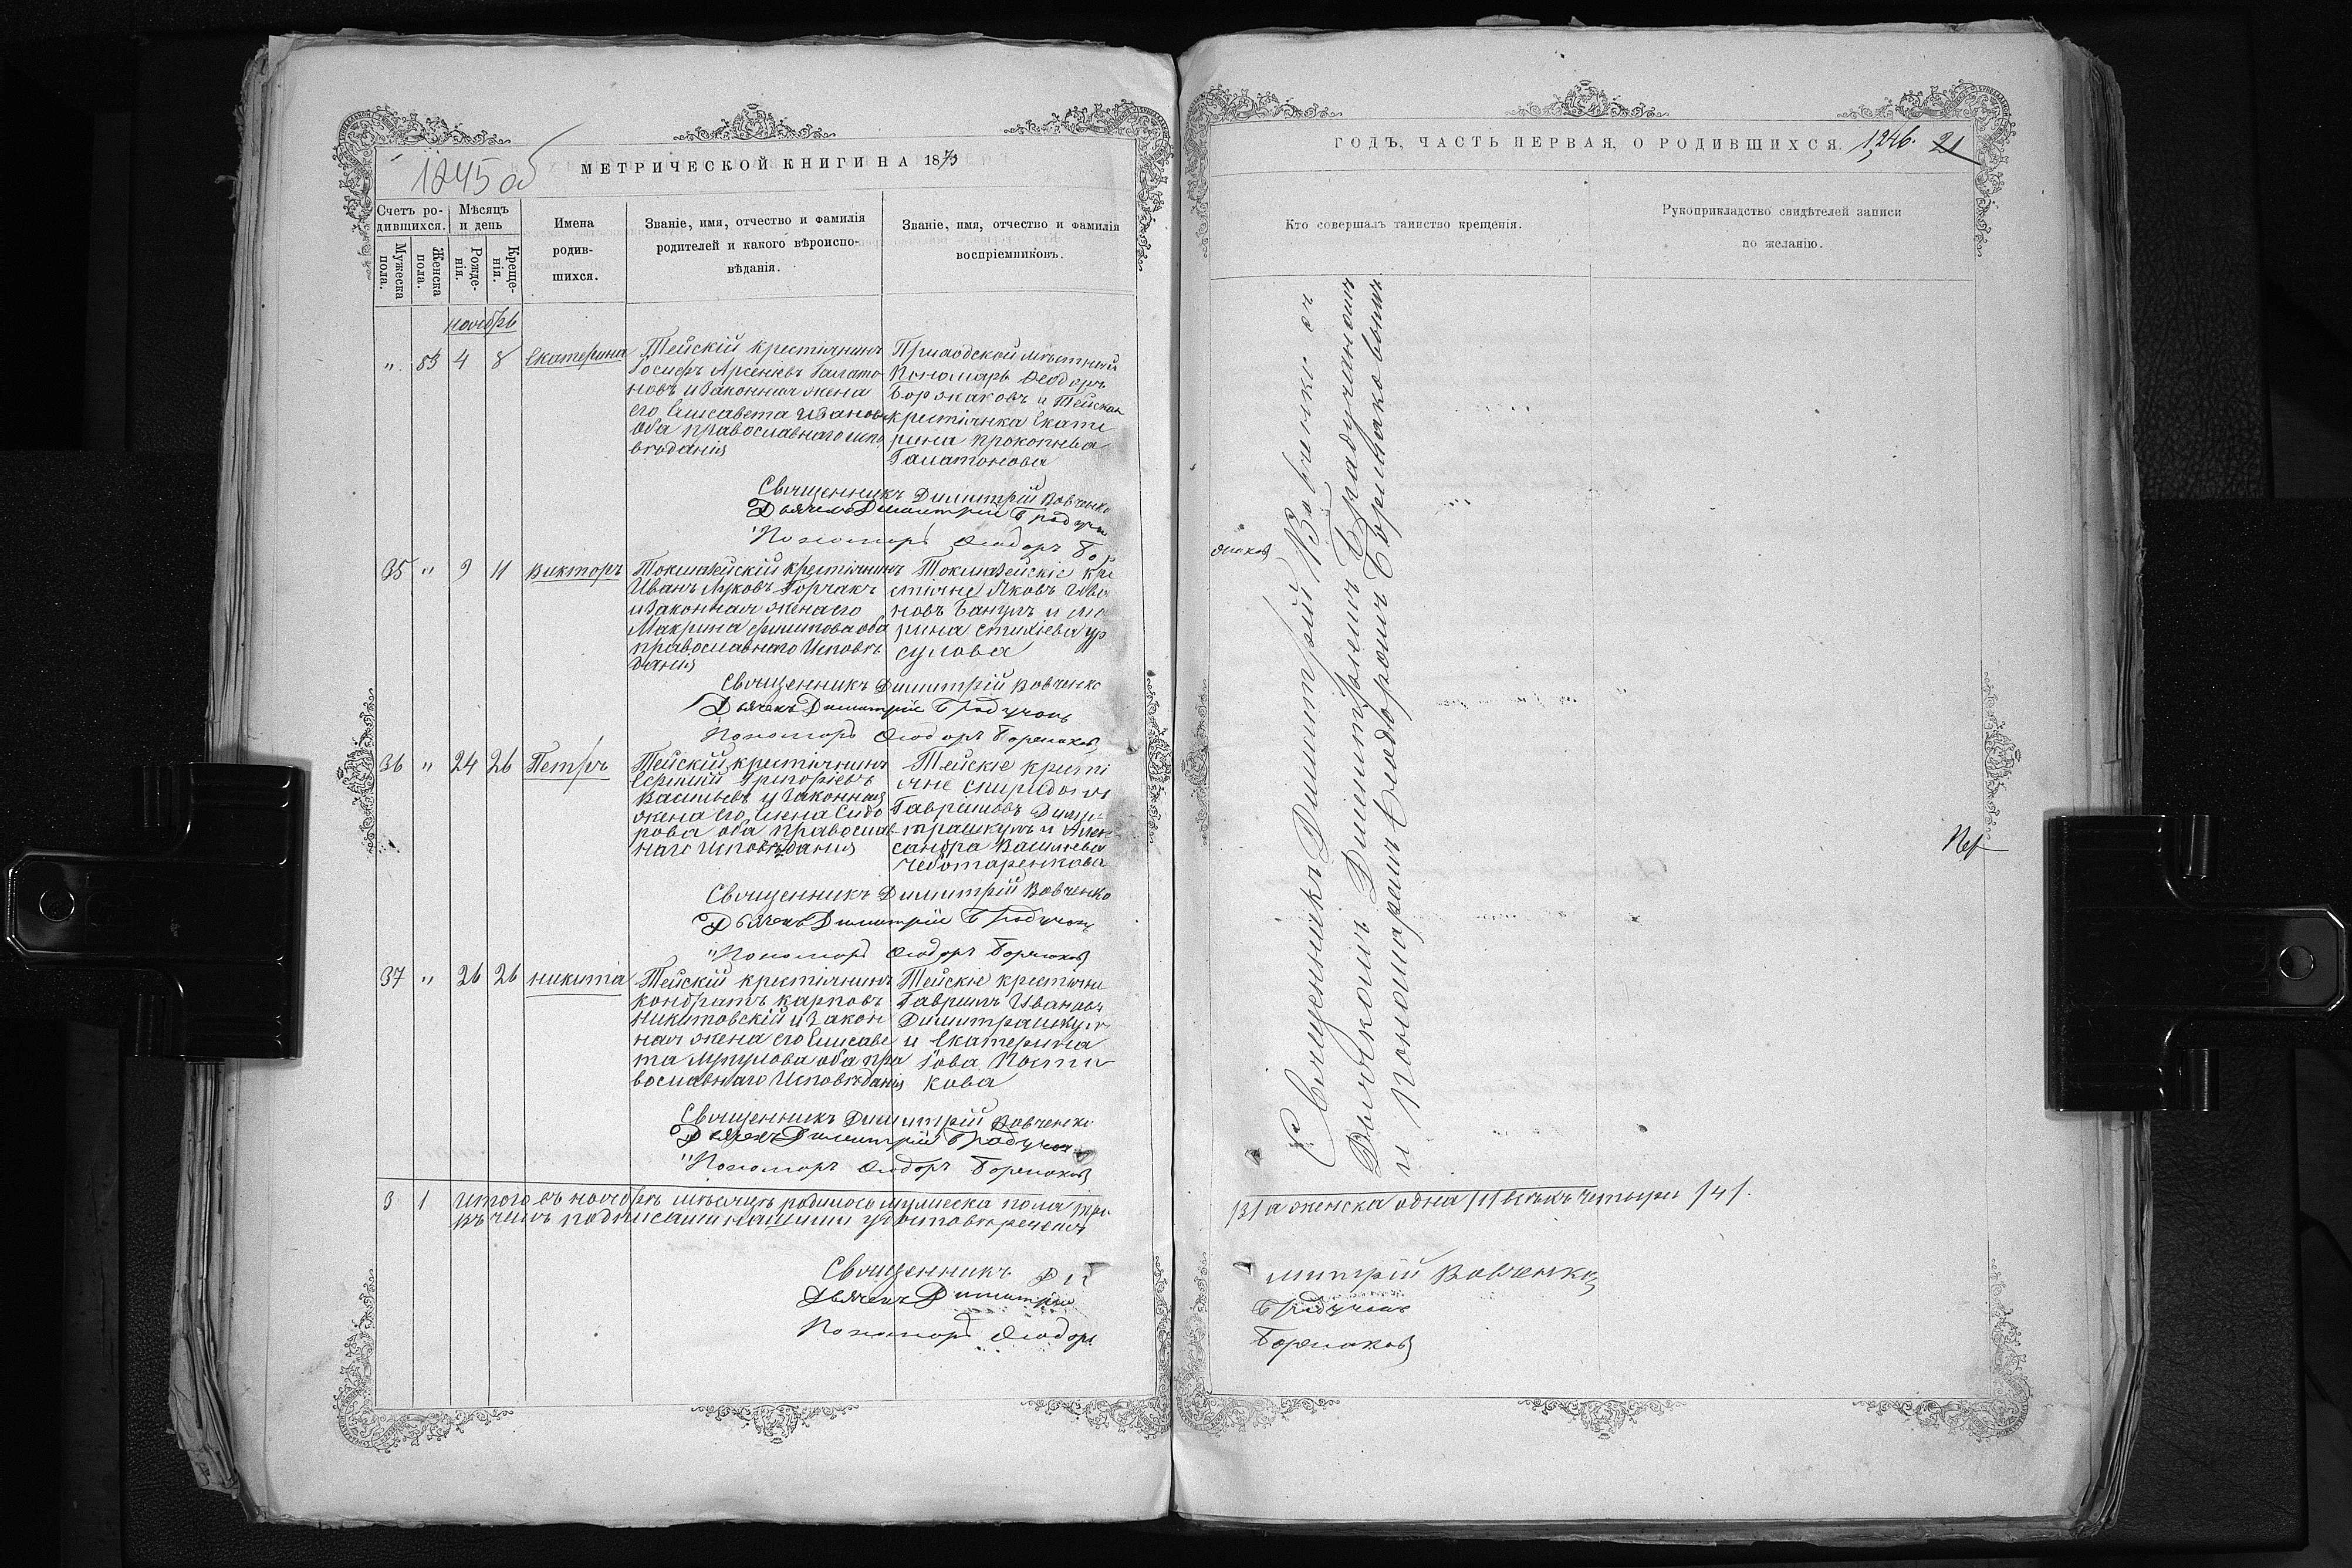 1245 об
МЕТРИЧЕСКОЙ КНИГИ НА 1873
Счетъ ро-
дившихся.
Мужеска
пола.
Женска
пола.
Мѣсяцъ
и день
Рожде-
нія.
Креще-
нія.
Имена
родив-
шихся.
Званіе, имя, отчество и фамилія
родителей и какого вѣроиспо-
вѣданія.
Званіе, имя, отчество и фамилія
воспріемниковъ.
ноябрь
" 4 8 Екатерина
Тейскій крестянинъ
Іосифъ Арсеневъ Галато
новъ и законная жена
его Елисавета Иванова
оба православнаго испо
вѣданія
Приходской мѣстный
Пономарь Ѳеодоръ
и Тейская
крестянка Екате
рина Прокопиева
Галатонова
Священникъ Димитрій Вовченко
Дьячекъ Димитрій
Пономарь Ѳеодоръ
35 " 9 11 Викторъ
Токмазейскій крестянинъ
Иванъ Луковъ Горчакъ
и законная жена его
Макрина Филипова оба
православнаго Исповѣ
данія
Токмазейскіе кре
стяне Яковъ Ива
новъ и Ма
рина Ур
сулова
Священникъ Димитрій Вовченко
Дьячекъ Димитрій
Пономарь Ѳеодоръ
36 " 24 26 Петръ
Тейскій крестянинъ
Григоріевъ
Васильевъ и законная
жена его Анна Сидо
рова оба православ
наго исповѣданія
Тейскіе крести
яне Спиридонъ
Гавриловъ Дими-
трашкулъ и Алек
сандра Васильева
Чеботаренкова
Священникъ Димитрій Вовченко
Дьячекъ Димитрій
Пономарь Ѳеодоръ
37 " 26 26 Никита
Тейскій крестянинъ
Кондратъ Карповъ
Никитовскій и закон
ная жена его Елисаве
та оба пра
вославнаго Исповѣданія
Тейскіе крестяне
Гавриилъ Ивановъ
Димитрашкулъ
и Екатерина
кова
Священникъ Димитрій Вовченко
Дьячекъ Димитрій
Пономарь Ѳеодоръ
3 1 Итого въ ноябрѣ мѣсяцѣ родилось мужеска пола три
въ чемъ подписаніи нашими удостовѣряемъ
Священникъ Ди
Дьячекъ Димитрій
Пономарь Ѳеодоръ
ГОДЪ, ЧАСТЬ ПЕРВАЯ, О РОДИВШИХСЯ.
1246. 21
Кто совершалъ таинство крещенія.
Рукоприкладство свидѣтелей записи
по желанію.
Священникъ Димитрій Вовченко съ
Дьячкомъ Димитріемъ
и Пономаремъ Ѳеодоромъ
/3/ а женска одна /1/ всѣхъ четыри /4/.
митрій Вовченко